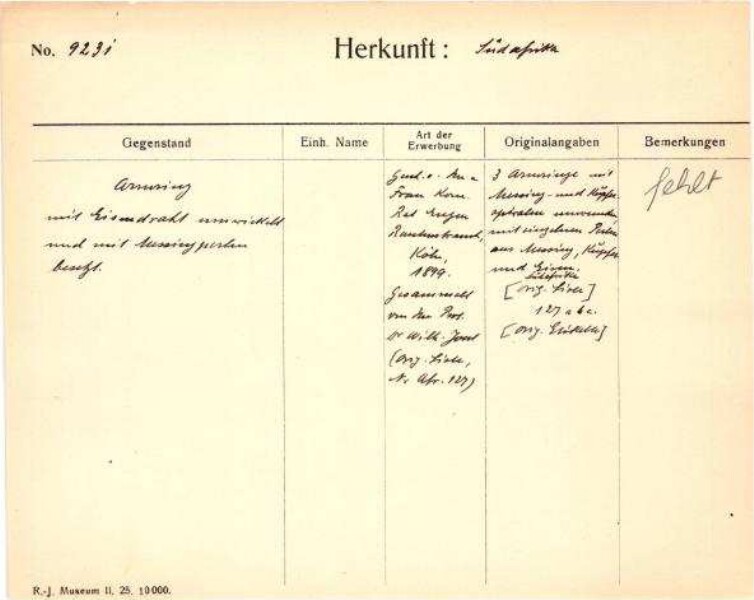 No. 9231
Herkunft: Südafrika
Gegenstand
Einh. Name
Art der
Erwerbung
Originalangaben
Bemerkungen
Armring
mit Eisendraht umwickelt
und mit Messingperlen
besetzt.
Frau Kom.
Rat Eugen
Rautenstrauch,
Köln,
1899.
Gesammelt
von dem Prof.
Dr Wilh. Joest
(orig. Liste,
N. Afr. 127)
3 Armringe mit
Messing- und Kupfer-
spiralen umwunden,
mit einzelnen Perlen
aus Messing, Kupfer
und Eisen.
Südafrika
[orig. Liste]
127 a b c.
[orig. Etikett]
fehlt
R.-J. Museum II. 25. 10000.